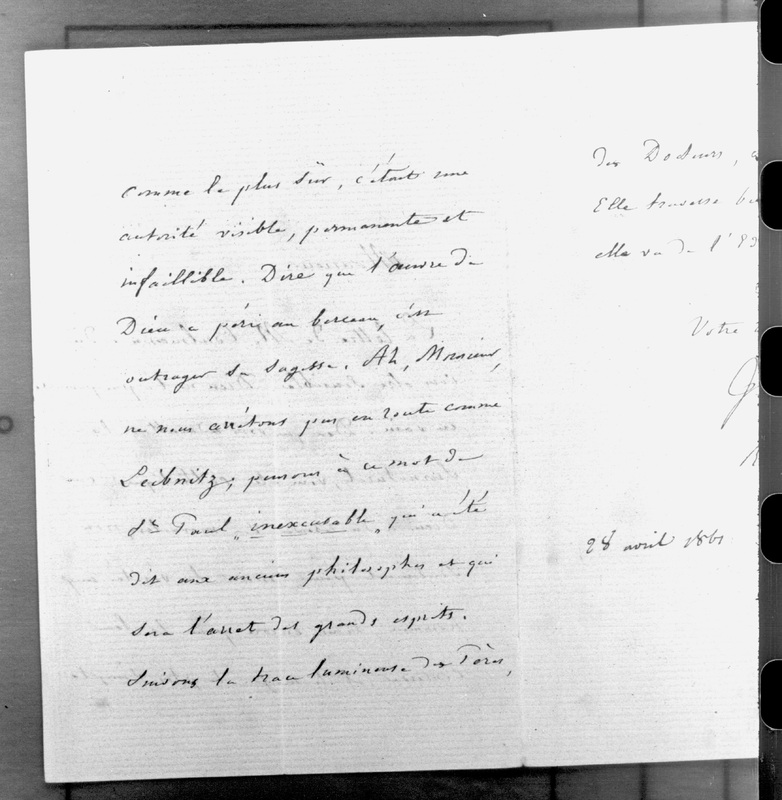 comme le plus sûr, c'était une
autorité visible, permanente et
infaillible. Dire que l'œuvre de
Dieu a péri au berceau, c'est
outrager sa sagesse. Ah, Monsieur,
ne nous arrêtons pas en route comme
Leibnitz; pensons à ce mot de
St Paul „inexcusable„ qui a été
dit aux anciens philosophes et qui
sera l'arret des grands esprits.
Suivons la trace lumineuse des Pères,
des Docteurs,
Elle traverse
elle va de l'
Votre
28 avril 1861